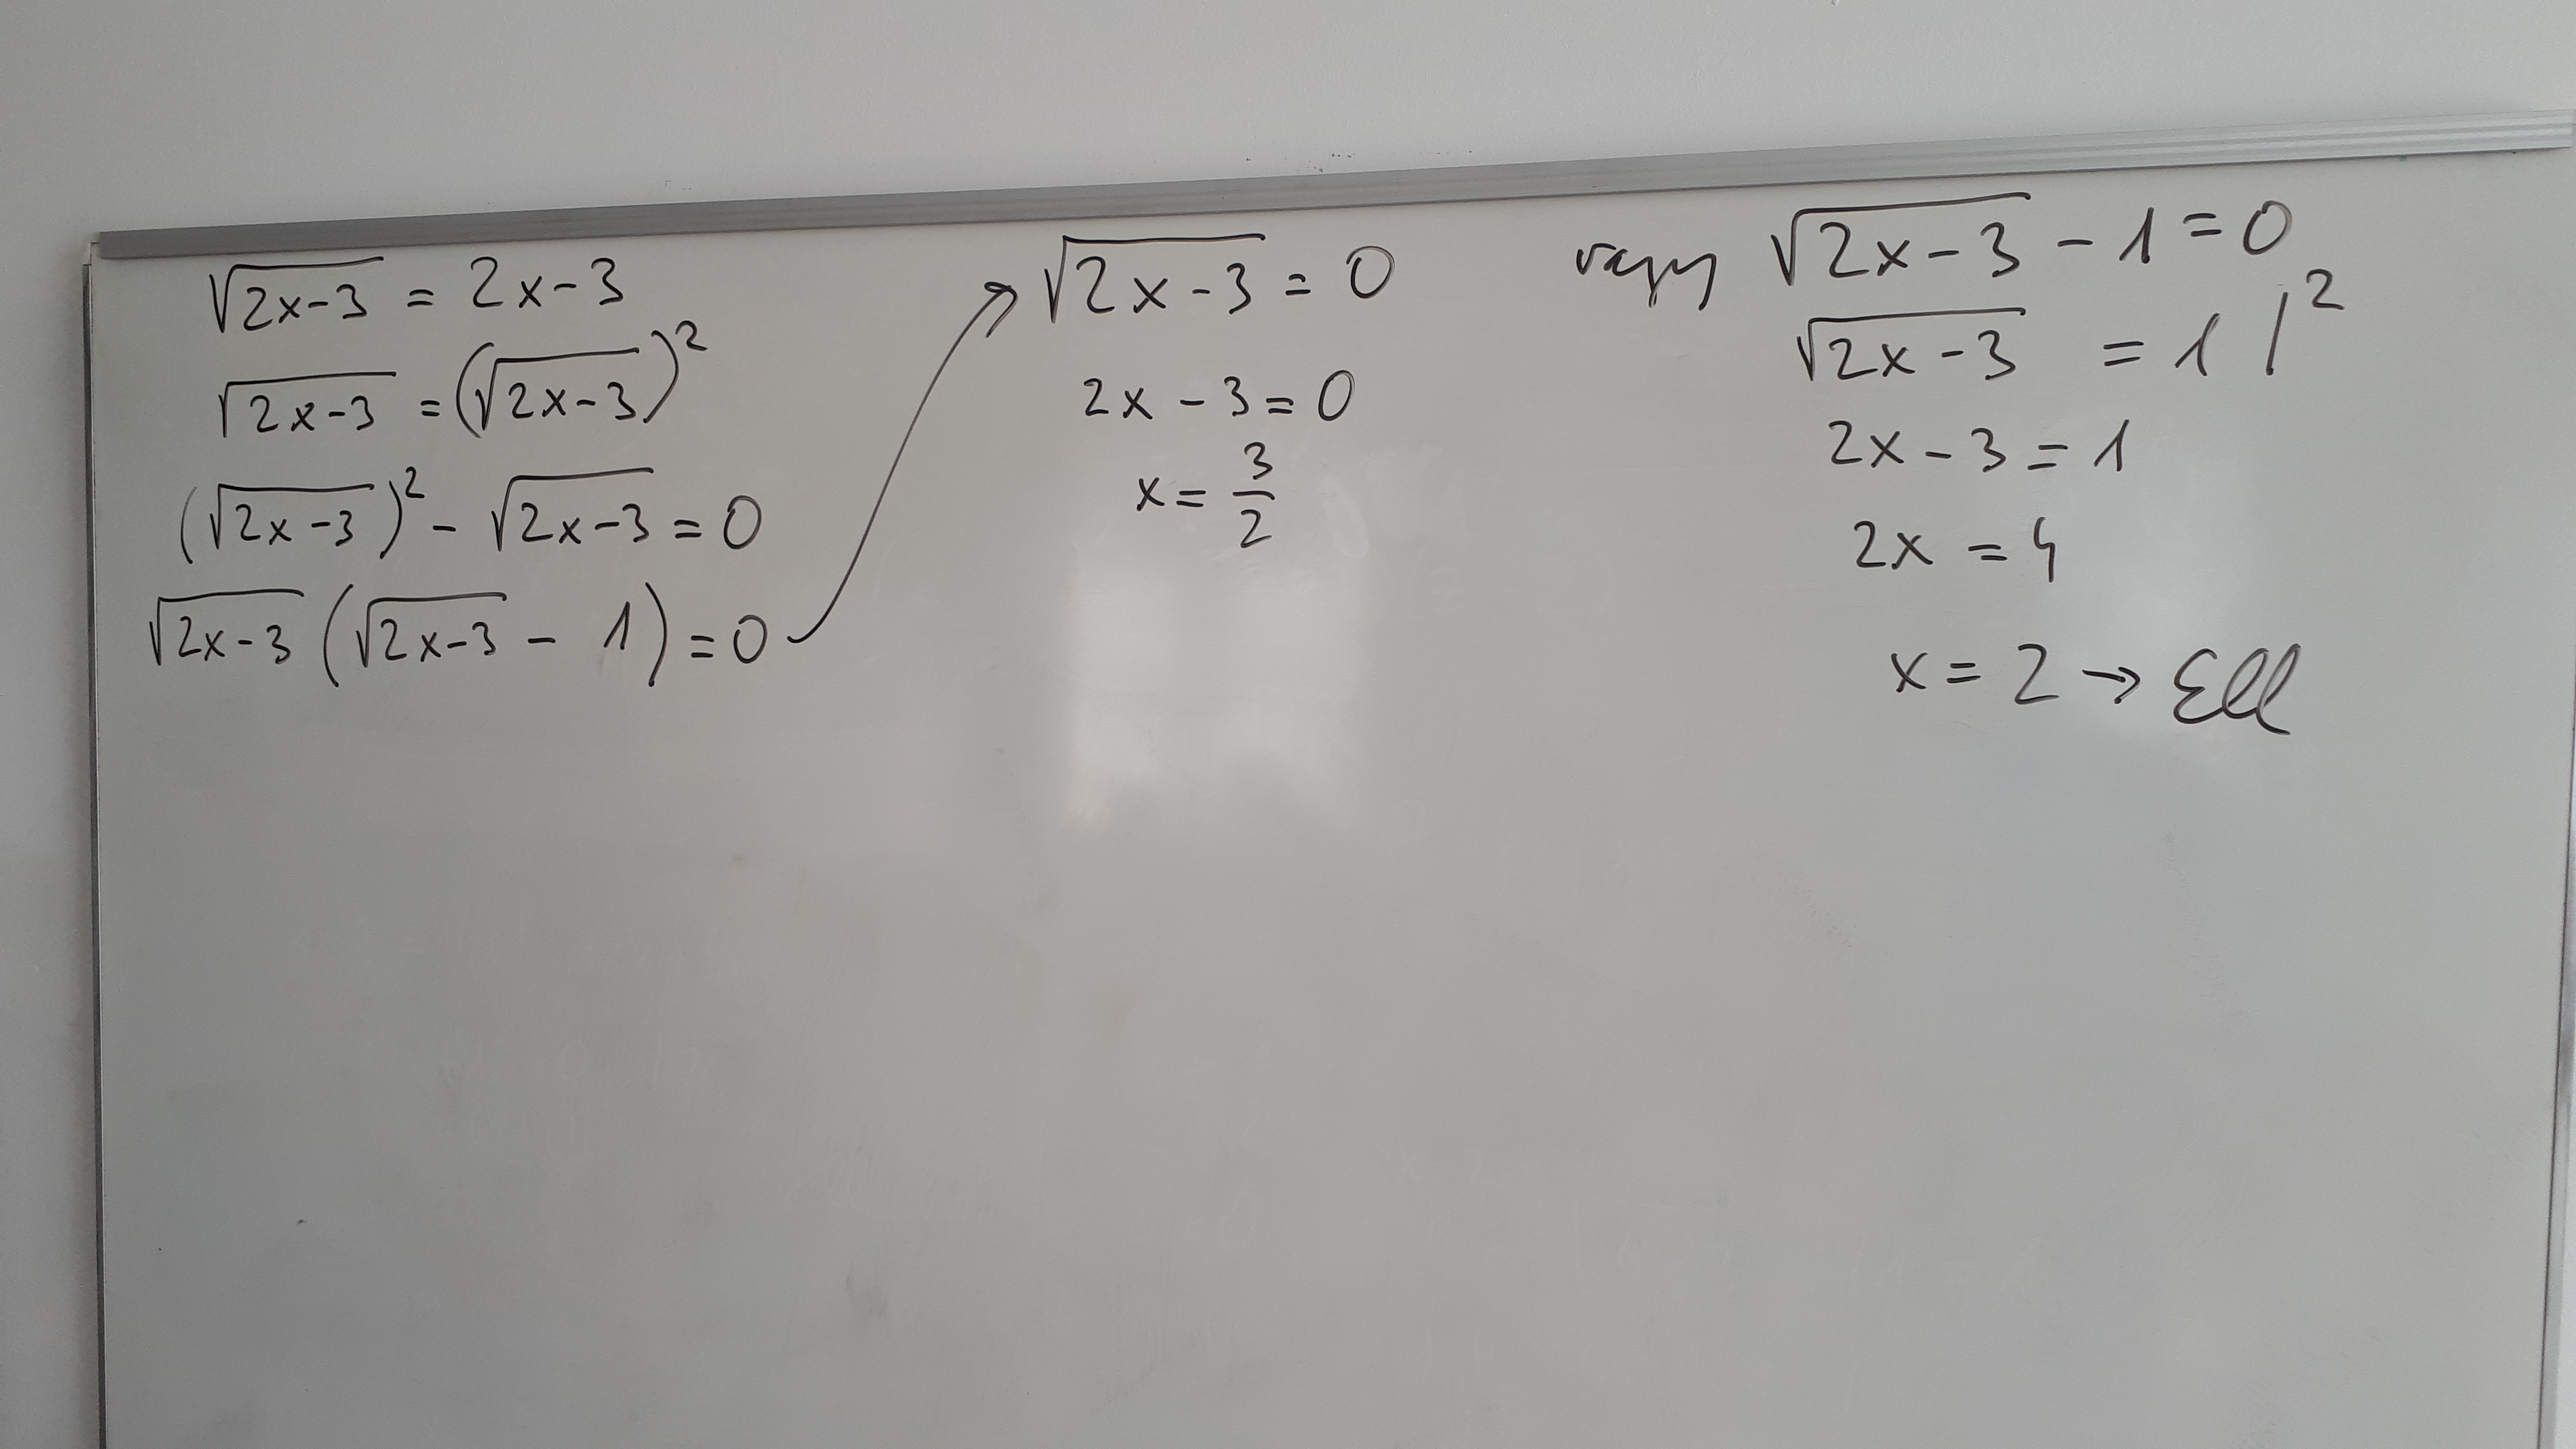 √(2x-3) = 2x-3
√(2x-3) = (√(2x-3))²
(√(2x-3))² - √(2x-3) = 0
√(2x-3) (√(2x-3) - 1) = 0
√(2x-3) = 0
2x - 3 = 0
x = 3/2
vagy √(2x-3) - 1 = 0
√(2x-3) = 1 /²
2x - 3 = 1
2x = 4
x = 2 → Ell